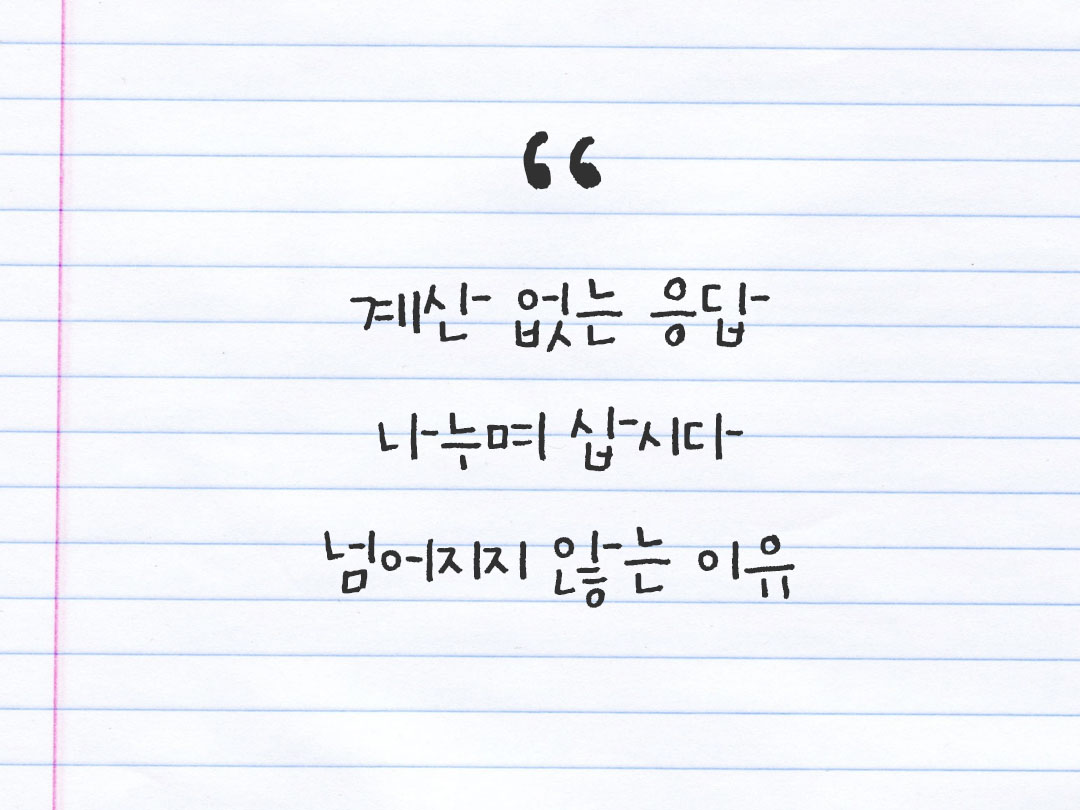 “
계산 없는 응답
나누며 삽시다
넘어지지 않는 이유